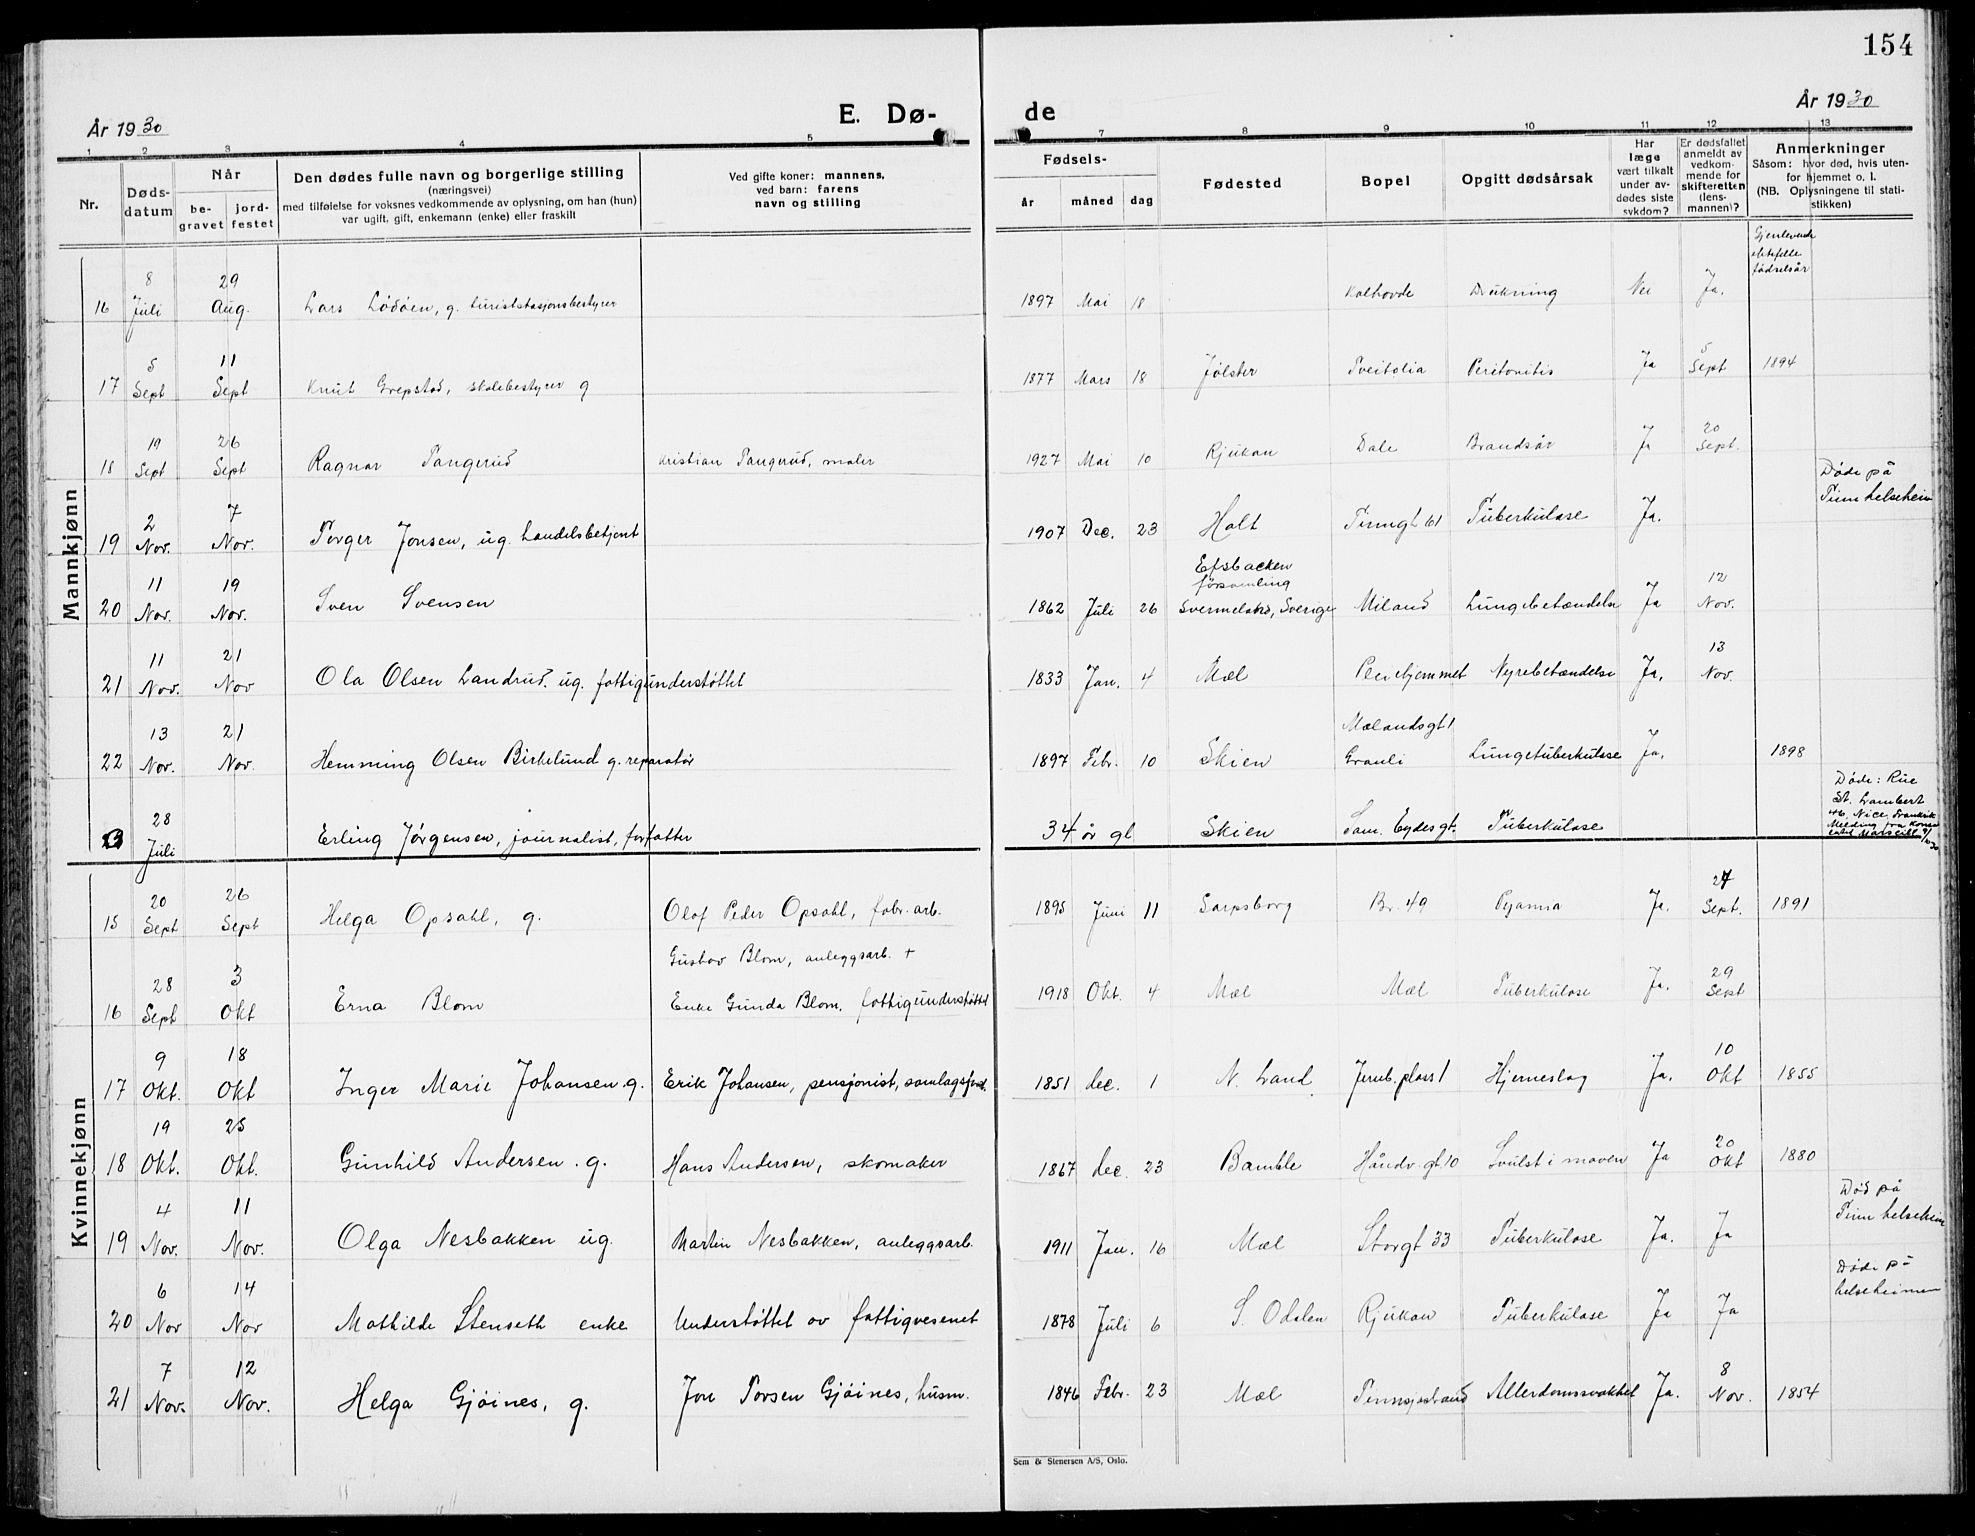 154
År 1930
E. Dø-
de
År 1930
1 2 3 4 5 7 8 9 10 11 12 13
Nr.
Døds-
datum
Når
be-
gravet
jord-
festet
Den dødes fulle navn og borgerlige stilling
(næringsvei)
med tilføielse for voksnes vedkommende av oplysning, om han (hun)
var ugift, gift, enkemann (enke) eller fraskilt
Ved gifte koner: mannens,
ved barn: farens
navn og stilling
Fødsels-
år måned dag
Fødested
Bopel
Opgitt dødsårsak
Har
læge
vært tilkalt
under av-
dødes siste
sykdom?
Er dødsfallet
anmeldt av
vedkom-
mende for
skifteretten
(lens-
mannen)?
Anmerkninger
Såsom: hvor død, hvis uten-
for hjemmet o. l.
(NB. Oplysningene til stati-
stikken)
Gjenlevende
ektefelle
fødselsår
Mannkjønn
16 8 Juli 29 Aug. Lars Lødøen, g. turiststasjonsbestyrer 1897 Mai 18 Kalhovde Drukning Nei Ja.
17 5 Sept 11 Sept Knut Grepstad, skolebestyrer g 1877 Mars 18 Jølster Tveitolia Peritonitis Ja 5 Sept 1894
18 19 Sept 26 Sept Ragnar Tangerud Kristian Tangerud, maler 1927 Mai 10 Rjukan Dale Brandsår Ja 20 Sept.
19 2 Nov. 7 Nov. Torger Jonsen, ug. handelsbetjent 1907 Dec. 23 Holt Tinngt 61 Tuberkulose Ja. Døde på Tinn helseheim
20 11 Nov. 19 Nov. Sven Svensen 1862 Juli 26 församling Sverige Miland Lungebetændelse Ja 12 Nov.
21 11 Nov. 21 Nov Ola Olsen Landrud. ug. fattigunderstøttet 1833 Jan. 4 Mæl Pleiehjemmet Nyrebetændelse Ja. 13 Nov.
22 13 Nov. 21 Nov. Hemming Olsen Birkelund g. reparatør 1897 Febr. 10 Skien Mælandsgt 1 Granli Lungetuberkulose Ja. 1898
23 28 Juli Erling Jørgensen, journalist, forfatter 34 år gl Skien Sam. Eydesgt. Tuberkulose Døde: Rue St. Lambert 46. Nice, Frankrik Melding fra
Kvinnekjønn
15 20 Sept 26 Sept Helga Opsahl, g. Olaf Peder Opsahl, fabr. arb. 1895 Juni 11 Sarpsborg Br. 49 Ja. 24 Sept. 1891
16 28 Sept 3 Okt Erna Blom Gustav Blom, anleggsarb. +
Enke Gunda Blom, fattigunderstøttet 1918 Okt. 4 Mæl Mæl Tuberkulose Ja. 29 Sept
17 9 Okt. 18 Okt Inger Marie Johansen. g. Erik Johansen, pensjonist, 1851 dec. 1 N. Land Jernb. plass 1 Hjerneslag Ja. 10 Okt 1855
18 19 Okt. 25 Okt. Gunhild Andersen. g. Hans Andersen, skomaker 1867 dec. 23 Bamble Håndv. gt. 10 Svulst i maven Ja 20 Okt 1880
19 4 Nov. 11 Nov. Olga Nesbakken ug. Martin Nesbakken, anleggsarb. 1911 Jan. 16 Mæl Storgt 33 Tuberkulose Ja. Ja Død på Tinn helseheim
20 6 Nov 14 Nov Mathilde Stenseth enke Understøttet av fattigvesenet 1878 Juli 6 S. Odalen Rjukan Tuberkulose Ja Ja Døde på helseheimen
21 7 Nov. 12 Nov. Helga Gjøines, g. Jon Torsen Gjøines, husm. 1846 Febr. 23 Mæl Tinnsjøstrand Allerdomssvakhet Ja. 8 Nov. 1854
Sem & Stenersen A/S, Oslo.